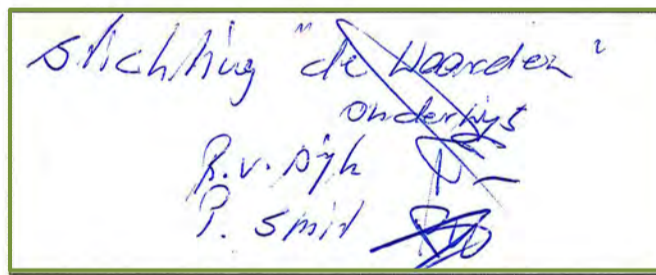 Stichting "de Waarden"
onderwijs
R.v. Dijk
P. Smit